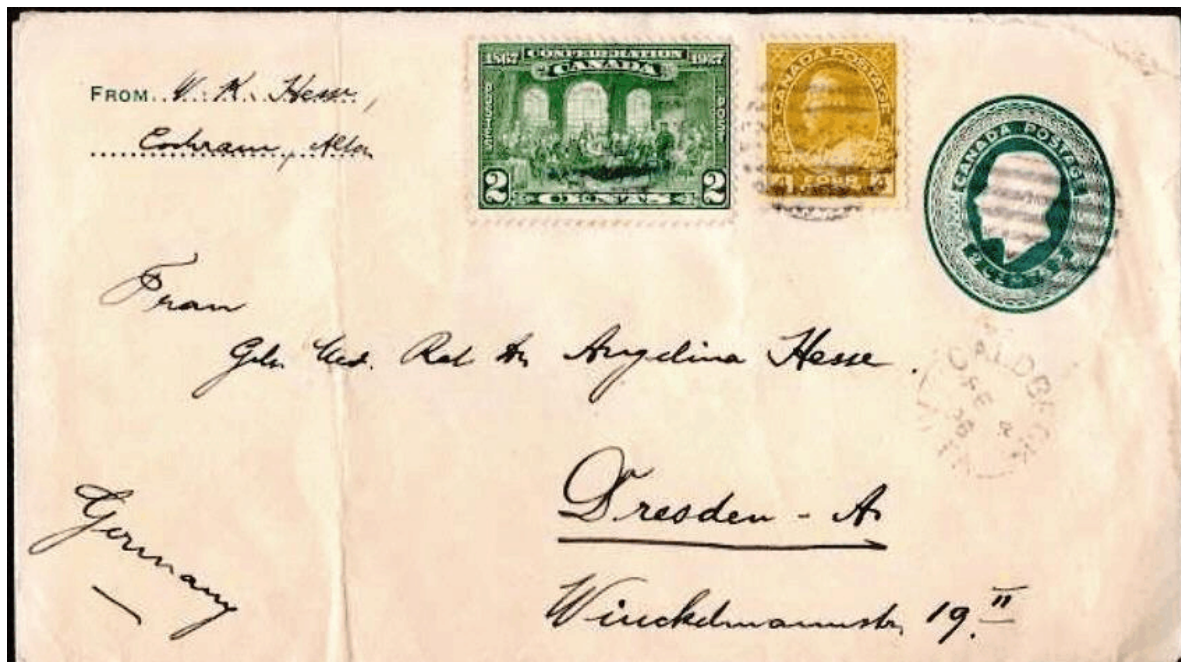 FROM W. K. Hesse,
Cochrane, Alta
1867 CONFEDERATION 1927
CANADA
POSTES POSTAGE
2 CENTS 2
CANADA POSTAGE
4 FOUR 4
CANADA POSTAGE
2 CENTS 2
Frau
Geh. Med. Rat Dr Angelina Hesse.
CALDBECK
Dresden - A.
Germany
Winckelmannstr. 19 II